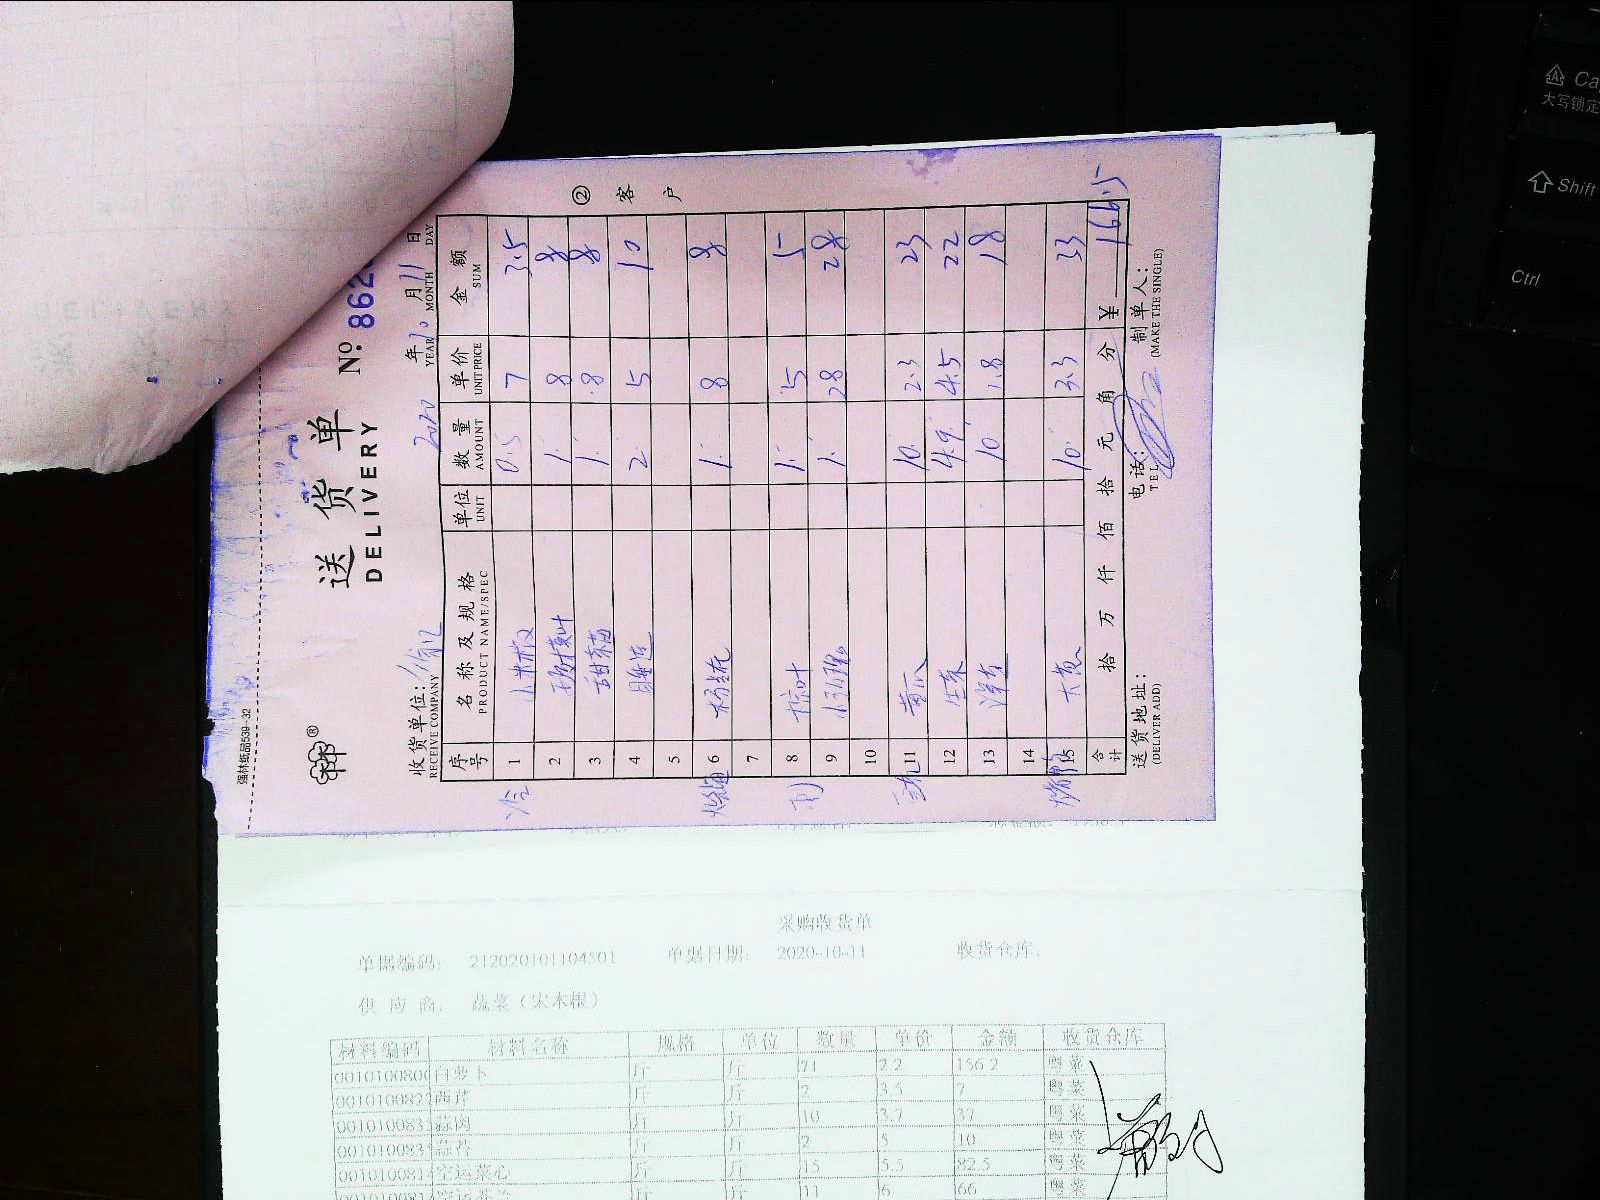 强林纸品539-32
送货单
DELIVERY
№: 862
② 客户
收货单位:
RECEIVE COMPANY
2020年10月11日
YEAR MONTH DAY
序号 名称及规格 单位 数量 单价 金额
PRODUCT NAME/SPEC UNIT AMOUNT UNIT PRICE SUM
1 小米椒 0.5 7 3.5
2 1. 8 8
3 1. 8 8
4 2. 5 10
5
6 1. 8 8
7
8 1. 5 5
9 1. 28 28
10
11 黄瓜 10. 2.3 23
12 生菜 4.9. 4.5 22
13 10. 1.8 18
14
15 大葱 10. 3.3 33
合计 拾 万 仟 佰 拾 元 角 分 ¥ 166.5
送货地址:
(DELIVER ADD)
电话:
TEL
制单人:
(MAKE THE SINGLE)
采购收货单
单据编码: 212020101104501 单据日期: 2020-10-11 收货仓库:
供应商: 蔬菜(宋木根)
材料编码 材料名称 规格 单位 数量 单价 金额 收货仓库
0010100800 白萝卜 斤 斤 71 2.2 156.2 粤菜
001010082 西芹 斤 斤 2 3.5 7 粤菜
001010083 蒜肉 斤 斤 10 3.7 37 粤菜
001010083 蒜苔 斤 斤 2 5 10 粤菜
001010081 空运菜心 斤 斤 15 5.5 82.5 粤菜
001010081 斤 斤 11 6 66 粤菜
大写锁定
Shift
Ctrl